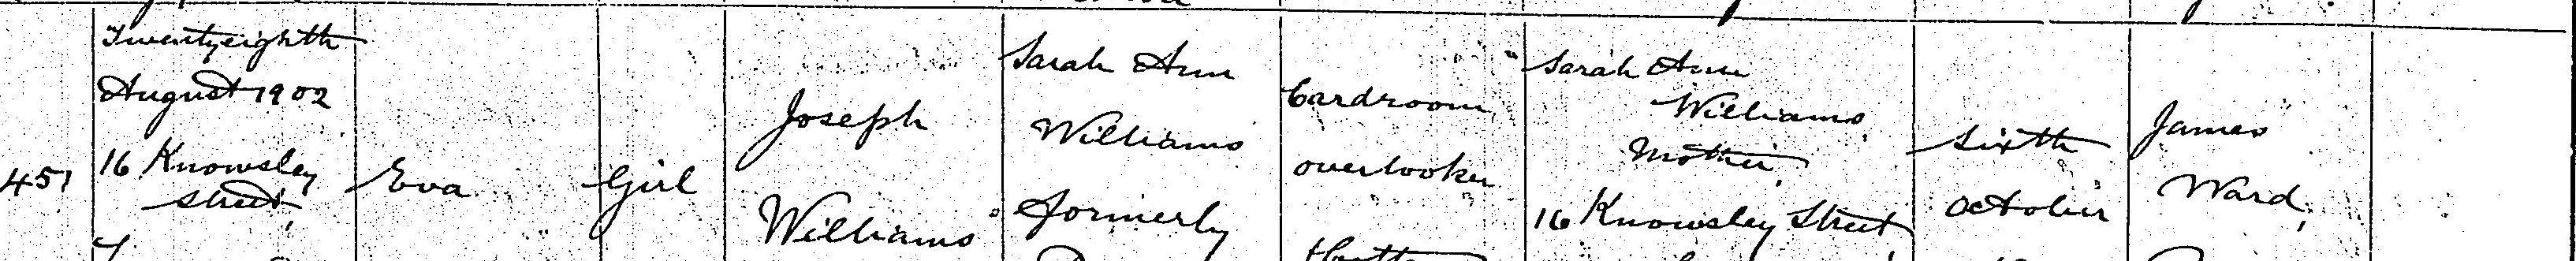 451
Twentyeighth
August 1902
16 Knowsley
Street
Eva
Girl
Joseph
Williams
Sarah Ann
Williams
formerly
Cardroom
overlooker
Sarah Ann
Williams
Mother
16 Knowsley Street
Sixth
October
James
Ward